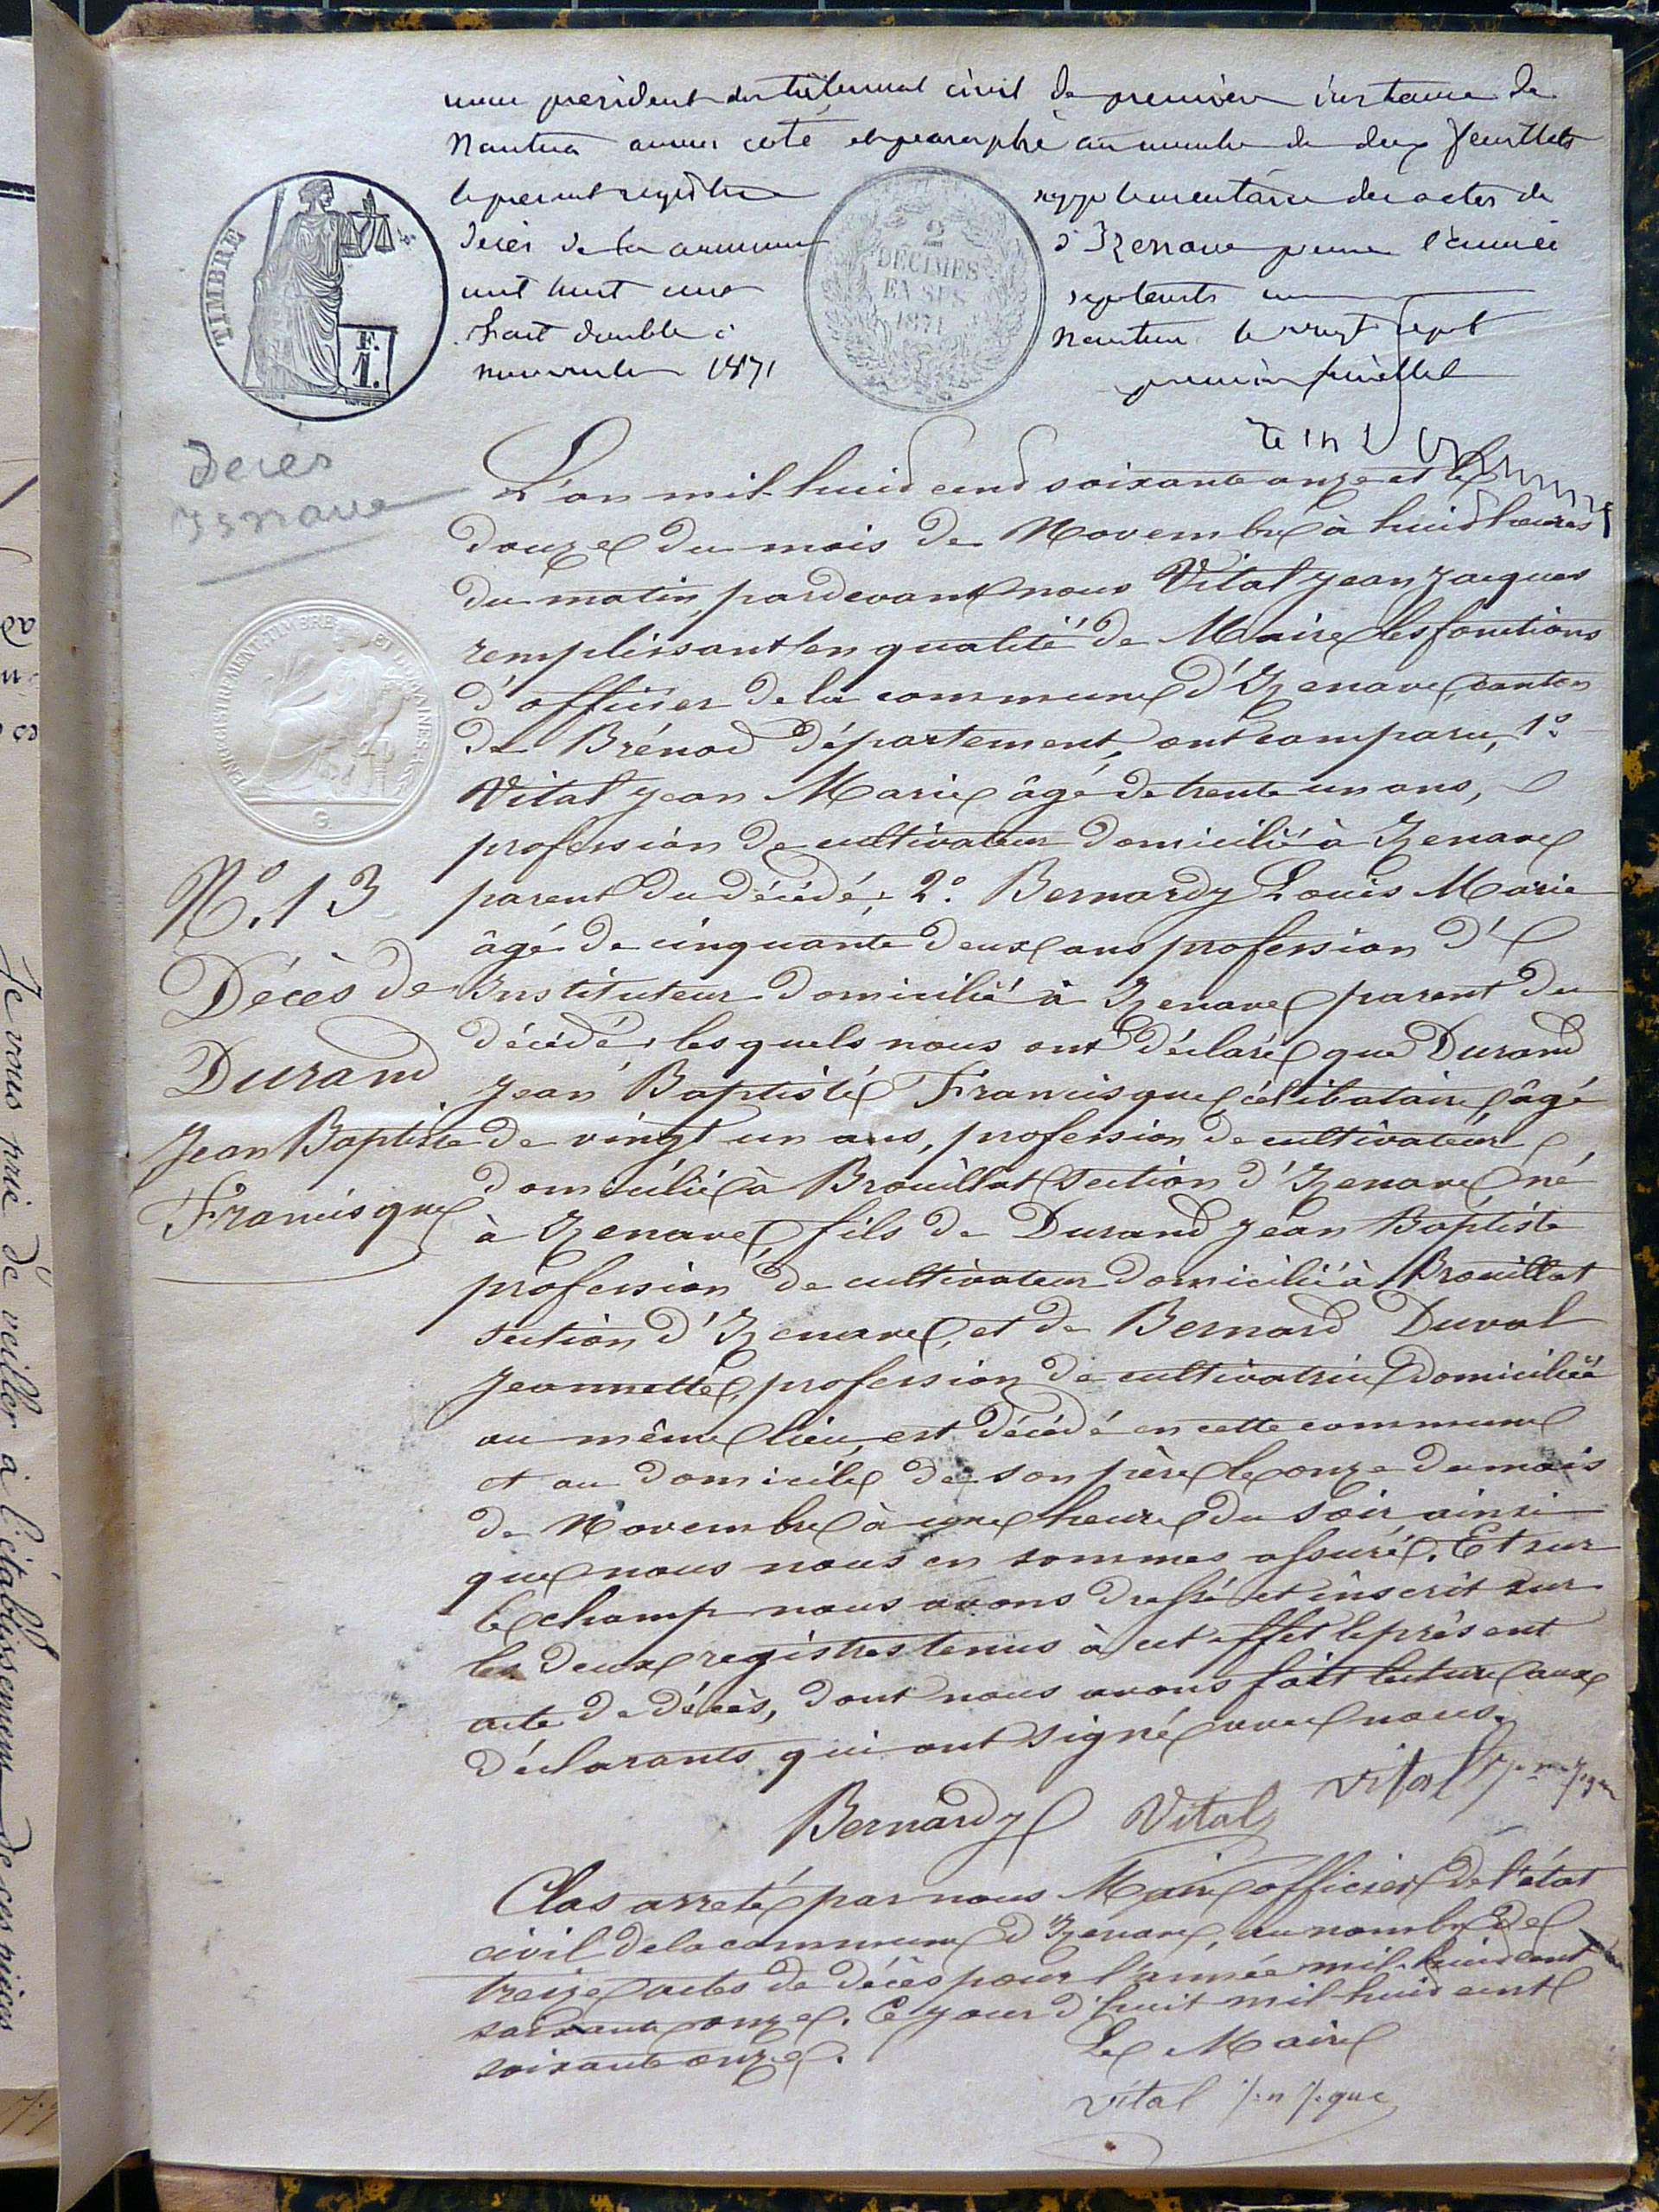 nous president du tribunal civil de première instance de
Nantua avons coté et paraphé au nombre de deux feuillets
le present registre supplementaire des actes de
décès de la commune d'Izenave pour l'année
mil huit cent septante un
Fait double à Nantua le vingt sept
novembre 1871 premier feuillet
TIMBRE
F.
1.
2
DÉCIMES
EN SUS
1871
Deces
Isnave
L'an mil-huid cend soixante onze et le
douze du mois de Novembre à huid heures
du matin, pardevant nous Vital Jean Jacques
remplissant en qualité de Maire les fonctions
d'officier de la commune d'Izenave, canton
de Brénod département, ont comparu, 1°.
Vital Jean Marie âgé de trente un ans,
profession de cultivateur domicilié à Izenave
parent du décédé; 2°. Bernardy Louis Marie
âgé de cinquante deux ans profession d'
Instituteur domicilié à Izenave parent du
décédé, lesquels nous ont déclaré que Durand
Jean Baptiste Francisque célibataire, âgé
de vingt un ans, profession de cultivateur,
domicilié à Brouillat section d'Izenave né
à Izenave, fils de Durand Jean Baptiste
profession de cultivateur domicilié à Brouillat
section d'Izenave, et de Bernard Duval
Jeannette, profession de cultivatrice domiciliée
au même lieu, est décédé en cette commune
et au domicile de son père le onze du mois
de Novembre à une heure du soir ainsi
que nous nous en sommes assuré. Et sur
le champ nous avons dressé et inscrit sur
les deux registres tenus à cet effet le présent
acte de décès, dont nous avons fait lecture aux
déclarants qui ont signé avec nous.
N°. 13
Décès de
Durand
Jean Baptiste
Francisque
ENREGISTREMENT TIMBRE ET DOMAINES
G
Bernardy Vital Vital Jn Jque
Clos arreté par nous Maire officier de l'état
civil de la commune d'Izenave, au nombre de
treize actes de décès pour l'année mil-huid cent
soixante onze. Ce jour d'huit mil-huid cent
soixante onze.
Le Maire
Vital Jn Jque
Je vous prie de veiller à l'établissement de ces pièces